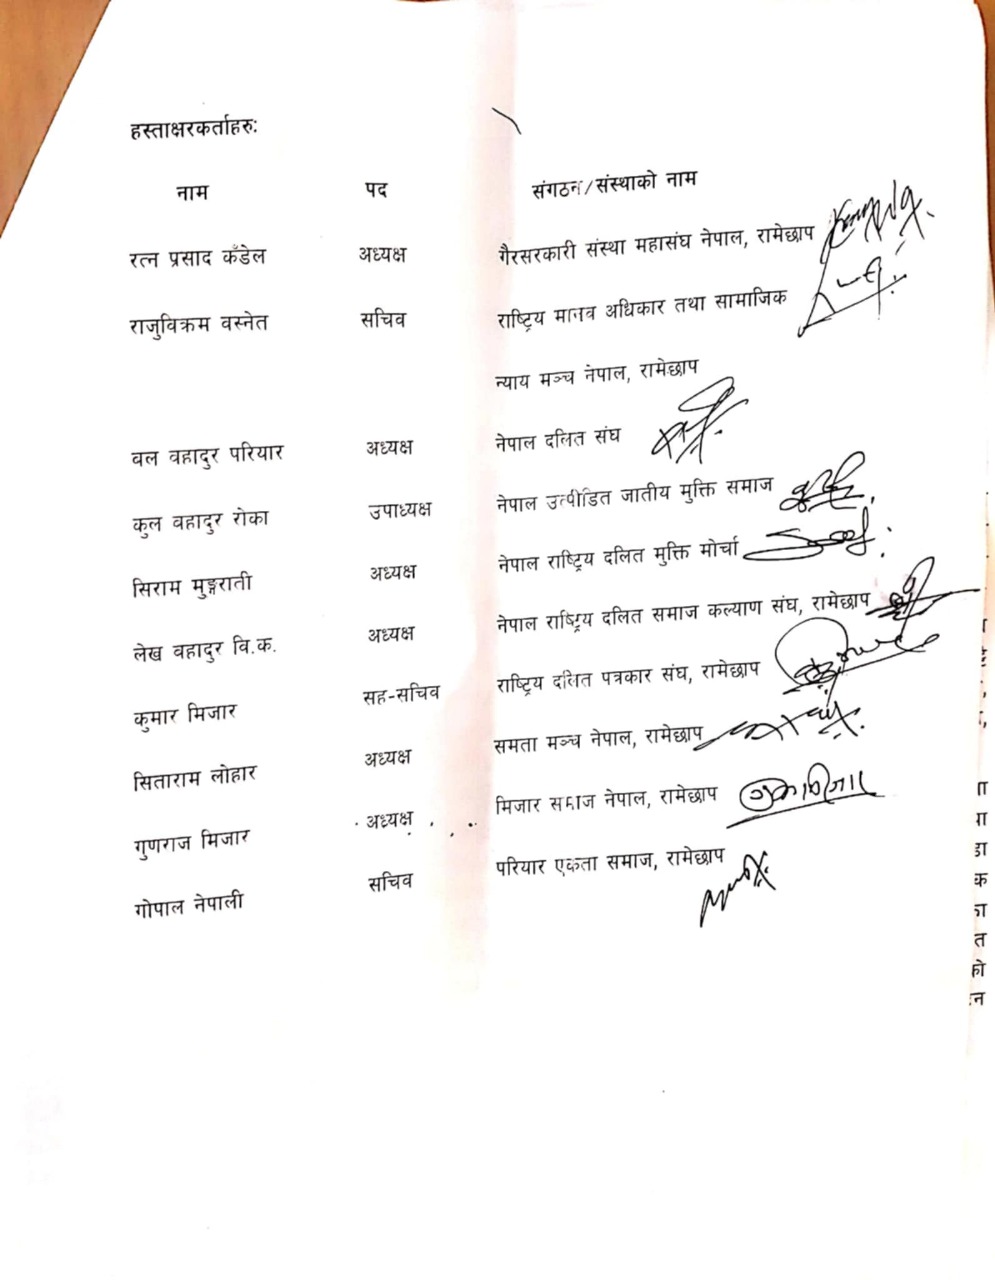 हस्ताक्षरकर्ताहरुः
नाम पद संगठन/संस्थाको नाम
रत्न प्रसाद कँडेल अध्यक्ष गैरसरकारी संस्था महासंघ नेपाल, रामेछाप
राजुविक्रम वस्नेत सचिव राष्ट्रिय मानव अधिकार तथा सामाजिक
न्याय मञ्च नेपाल, रामेछाप
वल वहादुर परियार अध्यक्ष नेपाल दलित संघ
कुल वहादुर रोका उपाध्यक्ष नेपाल उत्पीडित जातीय मुक्ति समाज
सिराम मुङ्गराती अध्यक्ष नेपाल राष्ट्रिय दलित मुक्ति मोर्चा
लेख वहादुर वि.क. अध्यक्ष नेपाल राष्ट्रिय दलित समाज कल्याण संघ, रामेछाप
कुमार मिजार सह-सचिव राष्ट्रिय दलित पत्रकार संघ, रामेछाप
सिताराम लोहार अध्यक्ष समता मञ्च नेपाल, रामेछाप
गुणराज मिजार अध्यक्ष मिजार समाज नेपाल, रामेछाप
गोपाल नेपाली सचिव परियार एकता समाज, रामेछाप